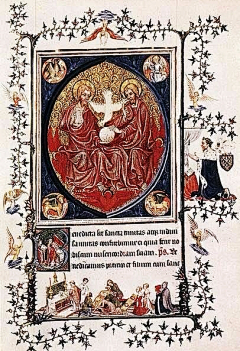 Benedicta sit sancta trinitas atqz indiui
sa unitas confitebimur ei quia fecit no
biscum misericordiam suam. ps. Be
nedicamus patrem et filium cum sanc